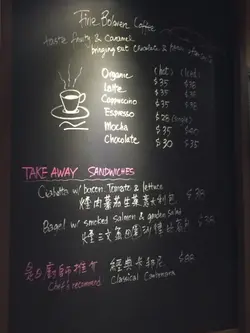 Fine Bolaven Coffee
taste fruity & Caramel
bringing out Chocolate &
(hot) (Iced)
Organic $35 $38
Latte $35 $38
Cappuccino $35 $38
Espresso $28 (single)
Mocha $35 $40
Chocolate $30 $35
TAKE AWAY SANDWICHES
Ciabatta w/ bacon Tomato & lettuce
煙肉蕃茄生菜意大利包 $38
Bagel w/ smoked salmon & garden salad
煙三文魚 $38
廚師推介 經典卡邦尼 $88
Chef's recommend Classical Carbonara